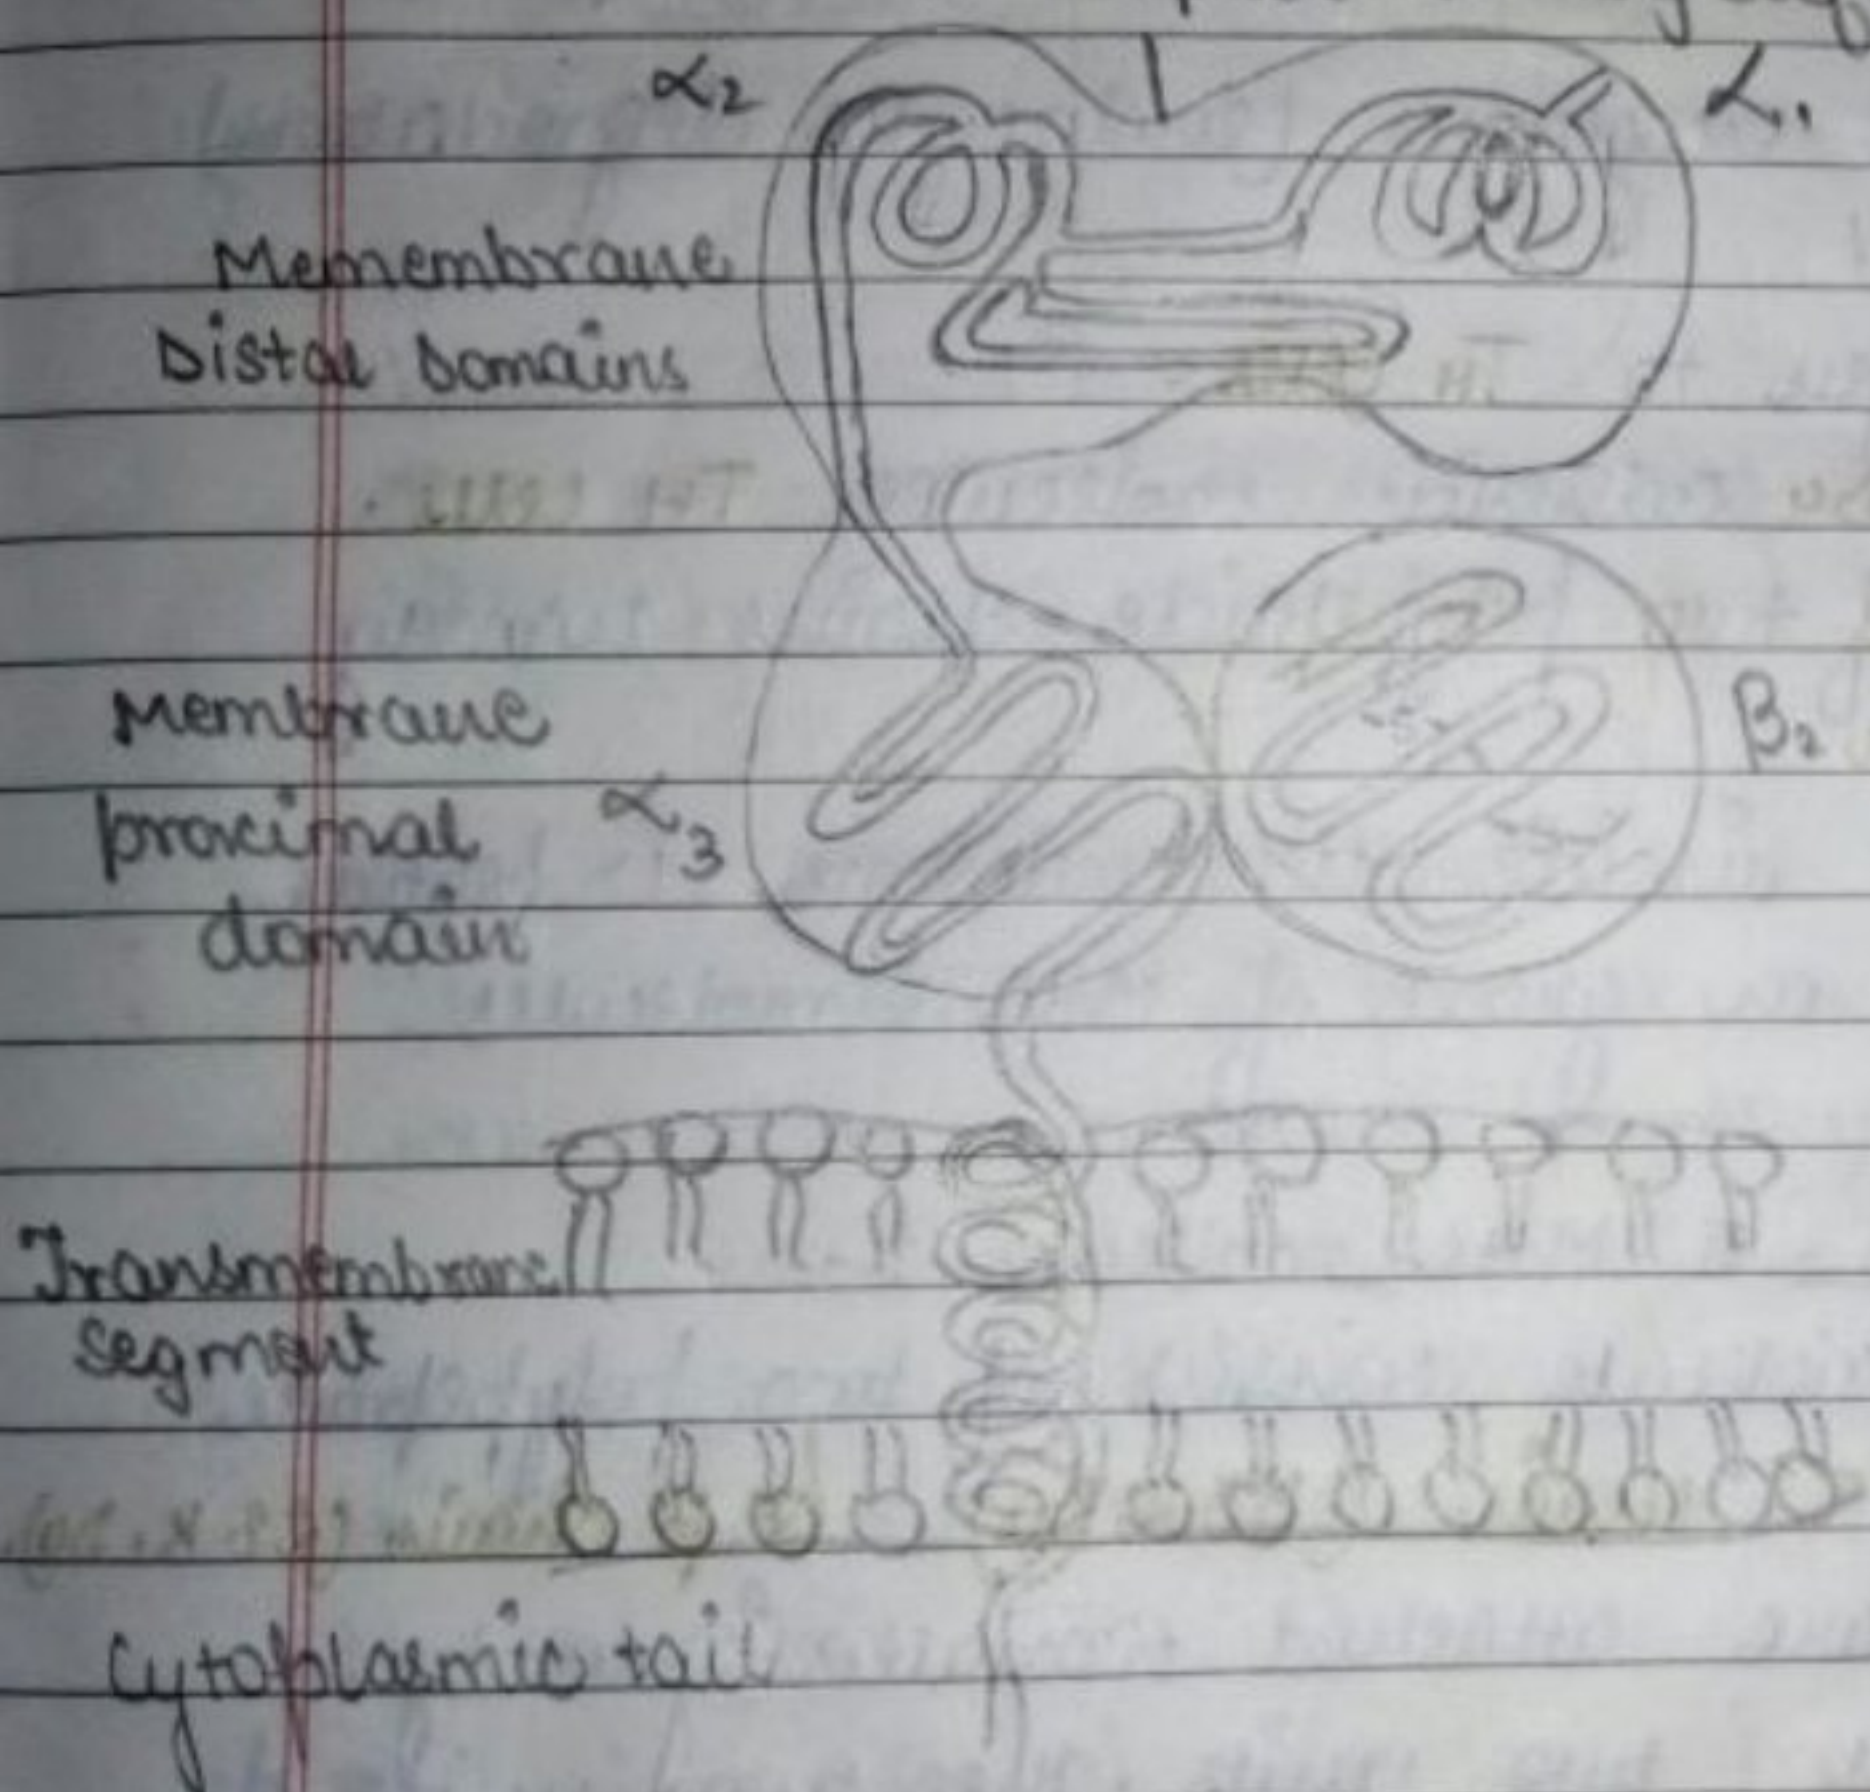 α2
α1
Memembrane
Distal Domains
Membrane
β2
proximal
α3
domain
Transmembrane
segment
Cytoplasmic tail